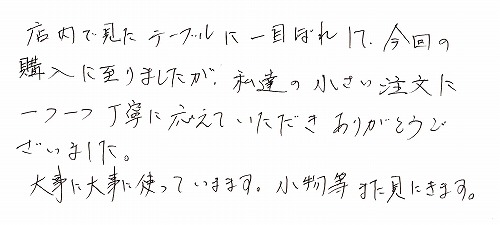 店内で見たテーブルに一目ぼれして、今回の
購入に至りましたが、私達の小さい注文に
一つ一つ丁寧に応えていただきありがとうご
ざいました。
大事に大事に使っていきます。小物等また見にきます。